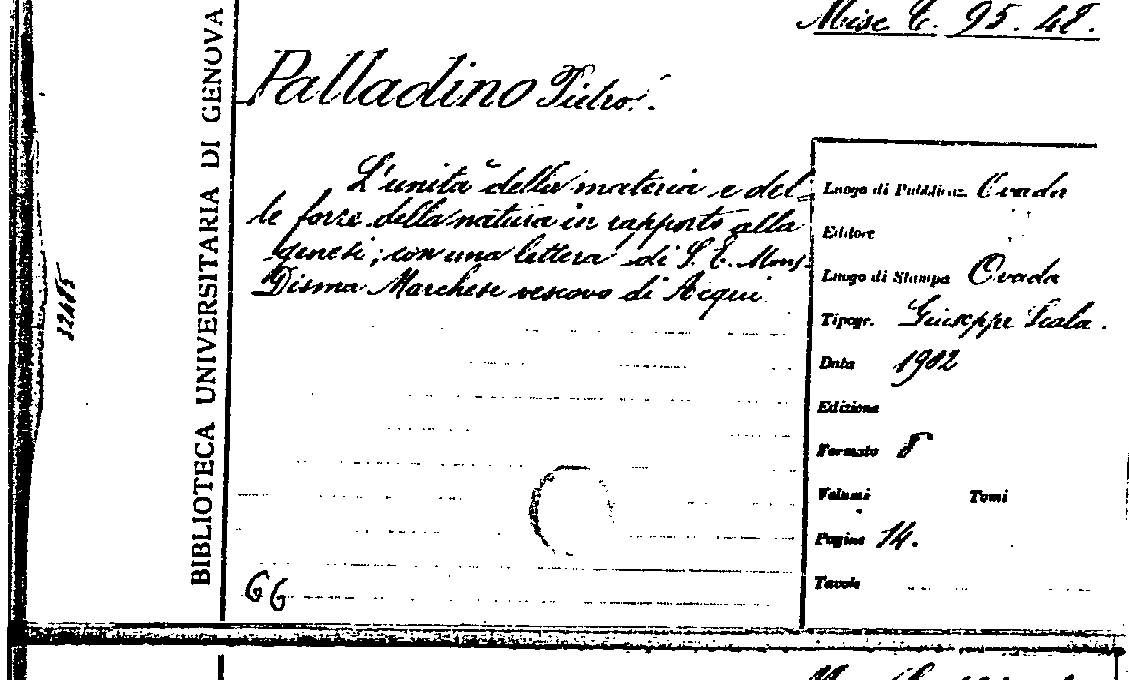 Misc. C. 95. 48.
BIBLIOTECA UNIVERSITARIA DI GENOVA
Palladino Pietro.
L'unità della materia e del-
le forze della natura in rapporto alla
genesi; con una lettera di S. E. Mons.
Disma Marchese vescovo di Acqui
Luogo di Pubblicaz. Ovada
Editore
Luogo di Stampa Ovada
Tipogr. Giuseppe Scala.
Data 1902
Edizione
Formato 8
Volumi Tomi
Pagine 14.
Tavole
GG